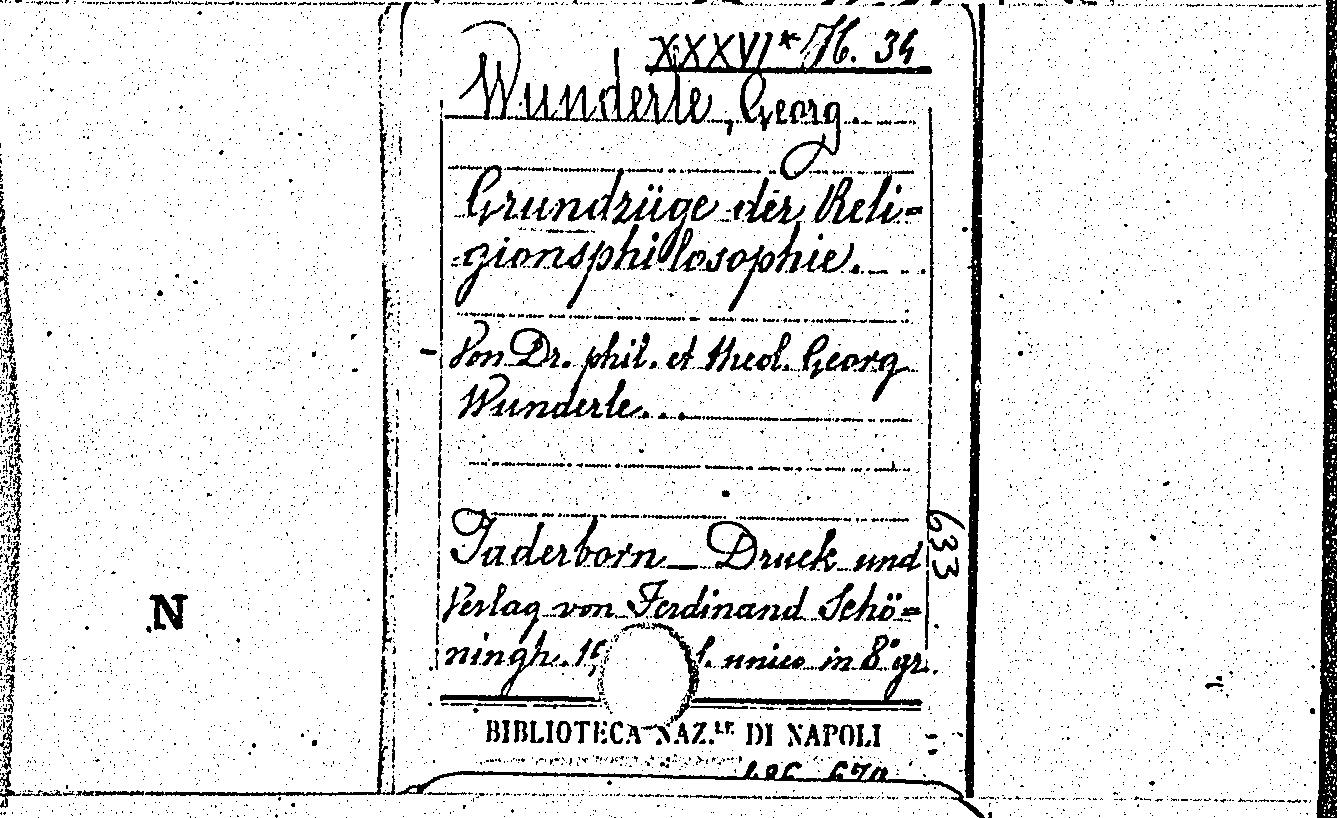 XXXVI* H. 34
Wunderle, Georg.
Grundzüge der Reli=
gionsphilosophie.
Von Dr. phil. et theol. Georg
Wunderle...
Paderborn _ Druck und
Verlag von Ferdinand Schö=
ningh. unico in 8° gr.
633
N
BIBLIOTECA NAZ.LE DI NAPOLI